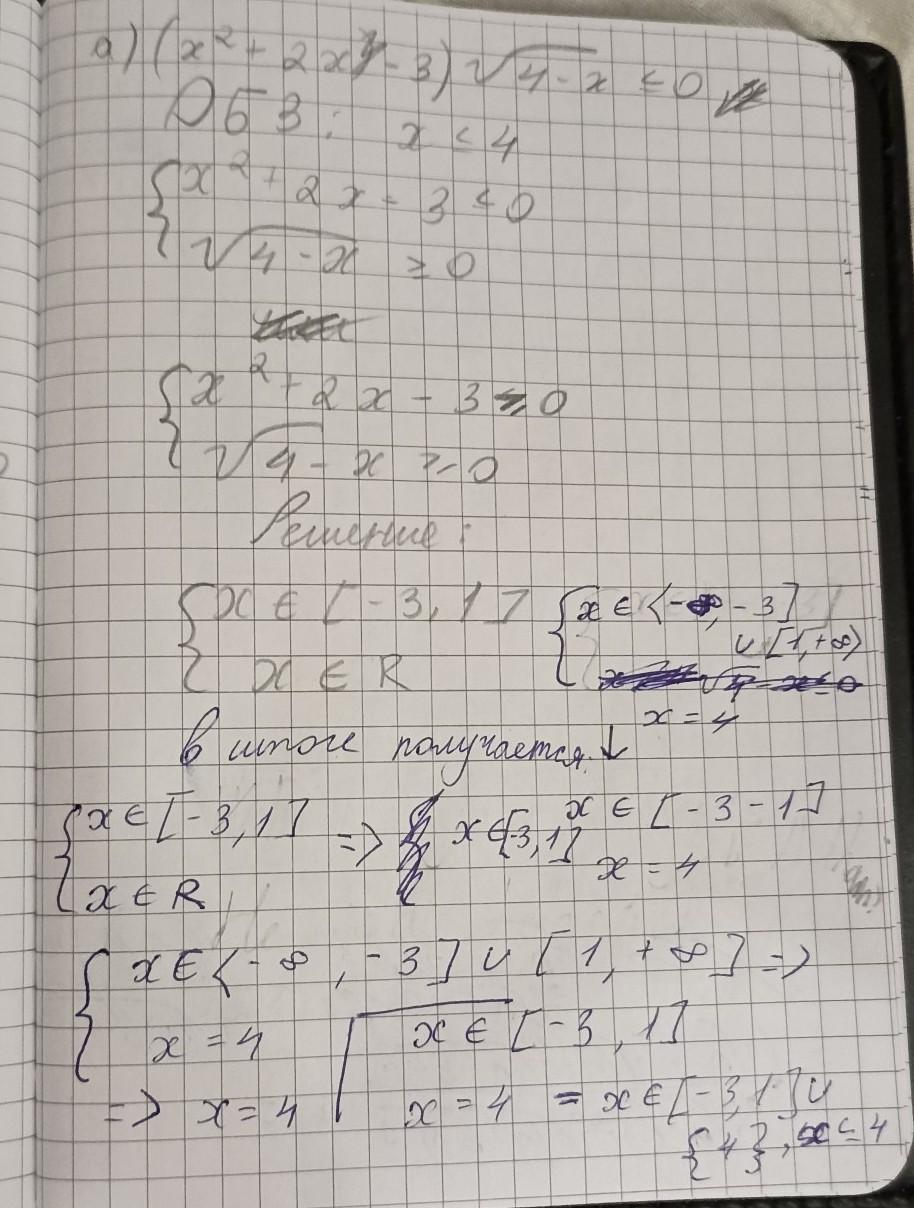 а) (x² + 2x - 3) √4-x ≤ 0
ОБЗ: x ≤ 4
{ x² + 2x - 3 ≤ 0
√4-x ≥ 0
{ x² + 2x - 3 ≥ 0
√4-x ≥ 0
Решение:
{ x ∈ [-3, 1]
x ∈ R
{ x ∈ ⟨-∞, -3]
∪ [1, +∞⟩
x = 4
В итоге получается ↓
{ x ∈ [-3, 1] => x ∈ [-3, 1]
x ∈ R
x ∈ [-3 - 1]
x = 4
{ x ∈ ⟨-∞, -3] ∪ [1, +∞] =>
x = 4
=> x = 4
[ x ∈ [-3, 1]
x = 4 = x ∈ [-3, 1] ∪
{4}, x ≤ 4